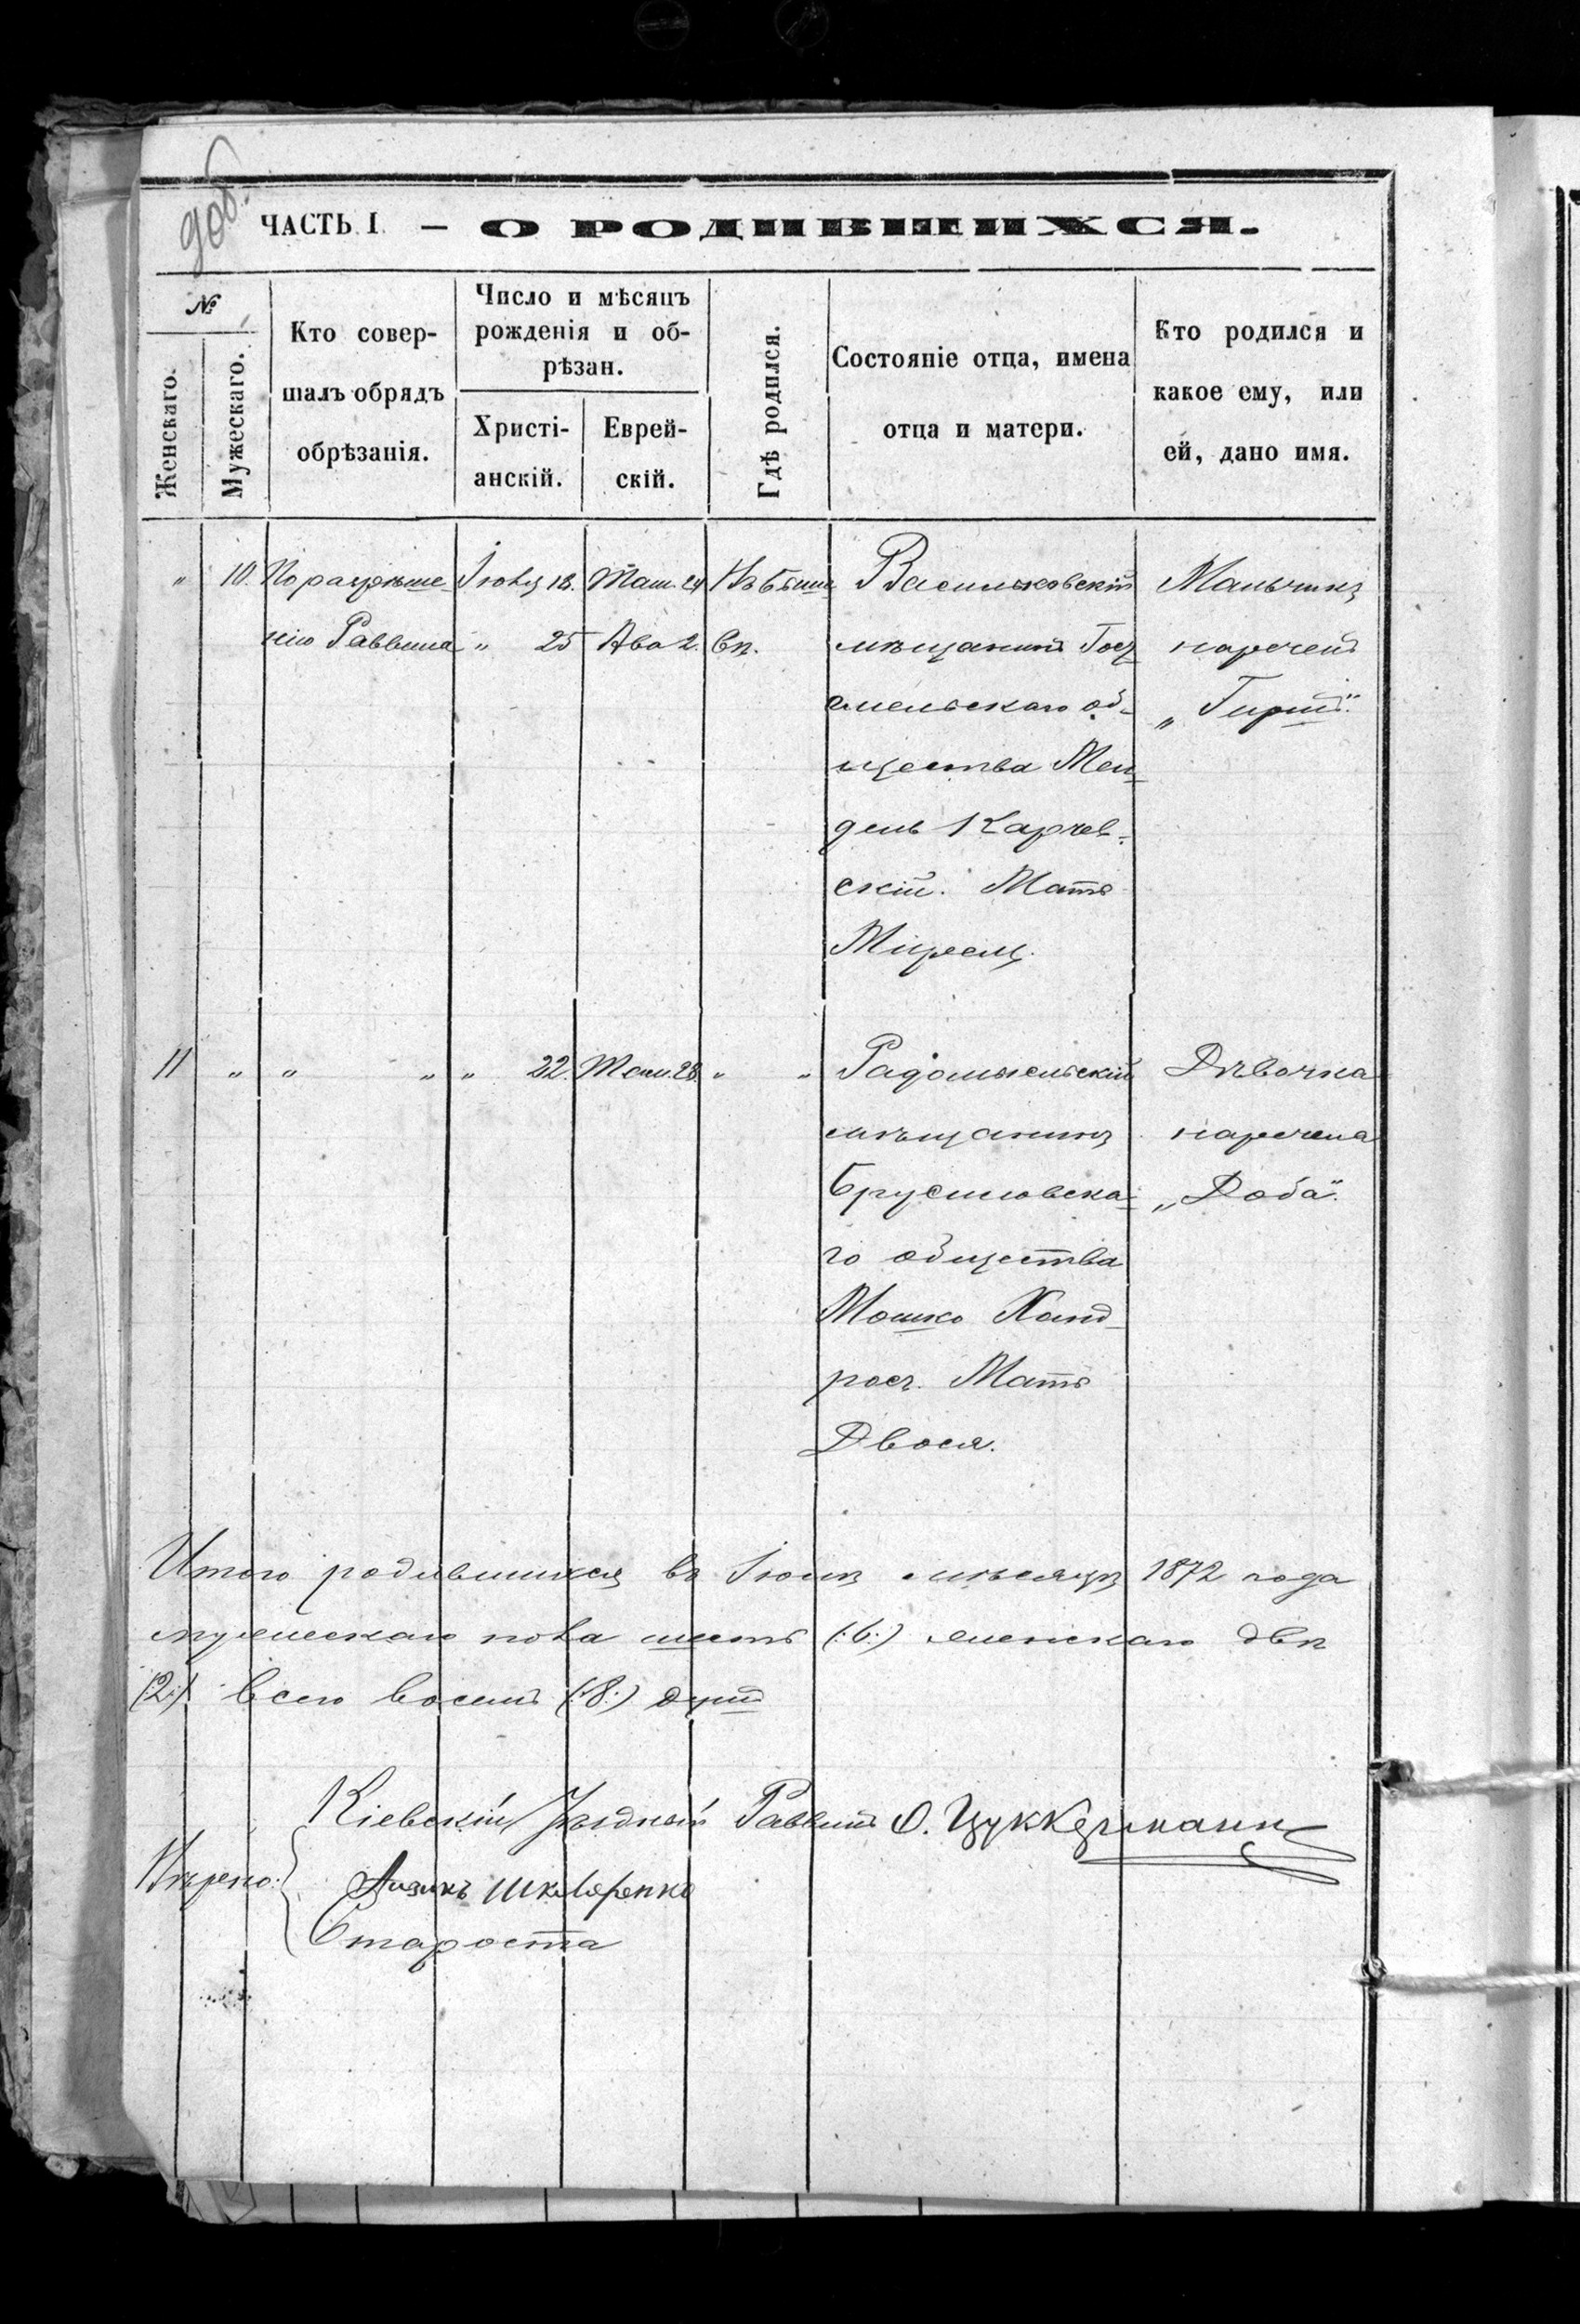 доб.
ЧАСТЬ I. — О РОДИВШИХСЯ.
№
Женскаго.
Мужескаго.
Кто совер-
шалъ обрядъ
обрѣзанія.
Число и мѣсяцъ
рожденія и об-
рѣзан.
Христі-
анскій.
Еврей-
скій.
Гдѣ родился.
Состояніе отца, имена
отца и матери.
Кто родился и
какое ему, или
ей, дано имя.
" 10. По разрѣше- Іюля 18. Там. 24 Въ Бѣли-
нію Раввина " 25 Ава 2.
Васильковскій
мѣщанинъ
об-
щества Мен-
дель Карчев-
скій. Мать
Миреля.
Мальчикъ
нареченъ
„Гиршъ"
11 " " " " 22. Там. 28. " "
Радомысльскій
мѣщанинъ
Брусиловска-
го общества
Мошко Ханд-
росъ. Мать
Двося.
Дѣвочка
наречена
„Доба".
Итого родившихся въ Іюлѣ мѣсяцѣ 1872 года
мужескаго пола шесть (:6:) женскаго двѣ
(:2:) всего восемь (:8:) душъ
Кіевскій Уѣздный Раввинъ О. Цуккерманъ
Вѣрно:
Староста